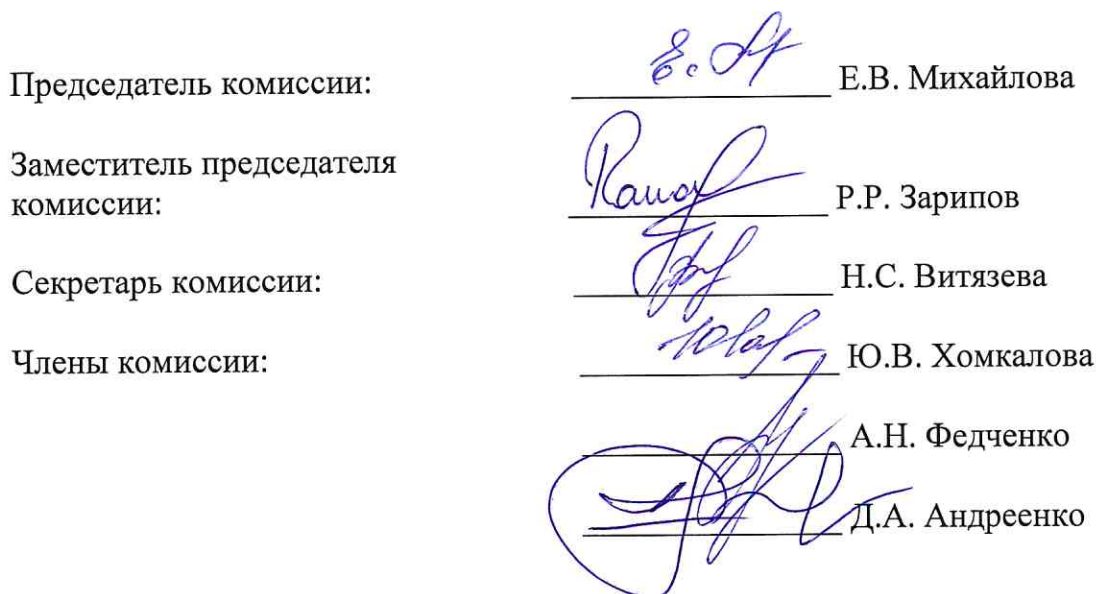 Председатель комиссии: Е.В. Михайлова
Заместитель председателя
комиссии: Р.Р. Зарипов
Секретарь комиссии: Н.С. Витязева
Члены комиссии: Ю.В. Хомкалова
А.Н. Федченко
Д.А. Андреенко